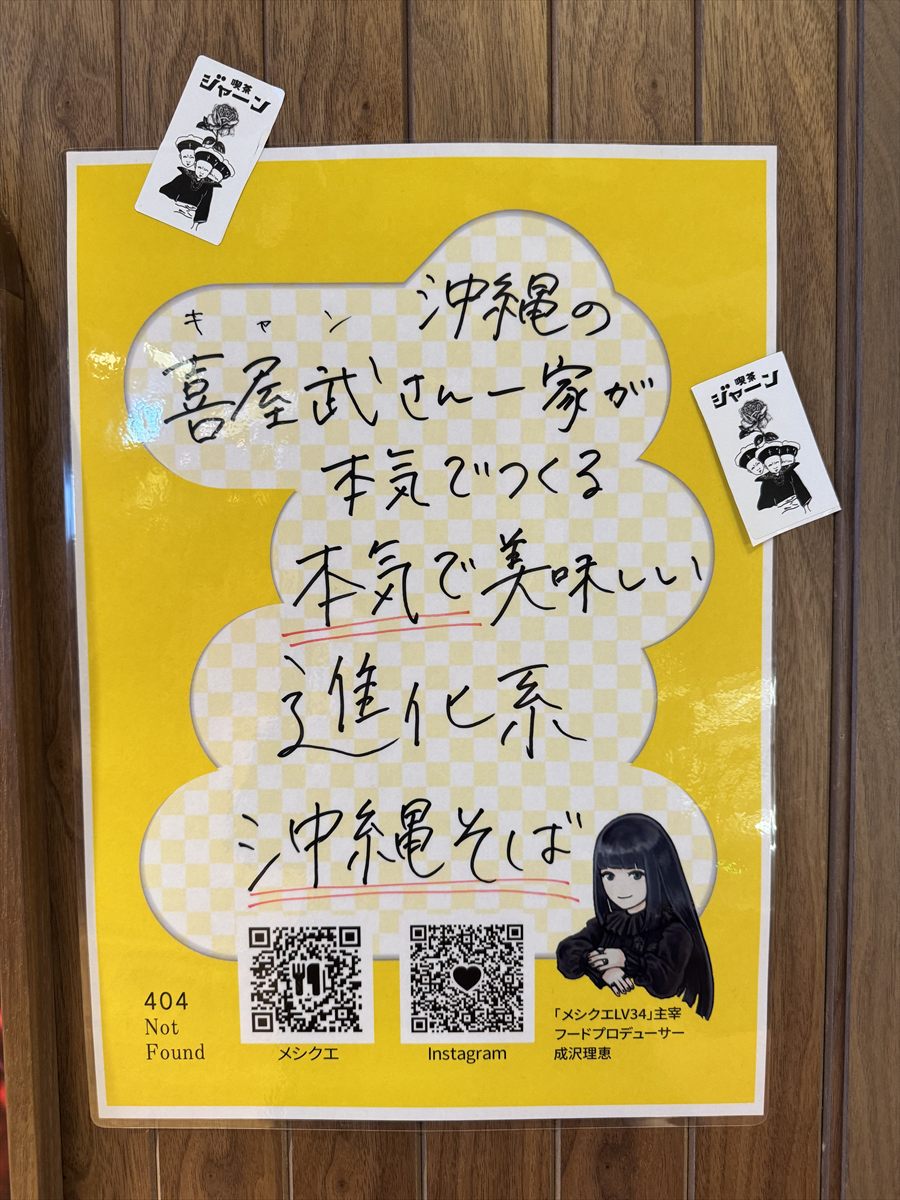 喫茶
ジャーン
沖縄の
キャン
喜屋武さん一家が
本気でつくる
本気で美味しい
進化系
沖縄そば
喫茶
ジャーン
404
Not
Found
メシクエ
Instagram
「メシクエLV34」主宰
フードプロデューサー
成沢理恵